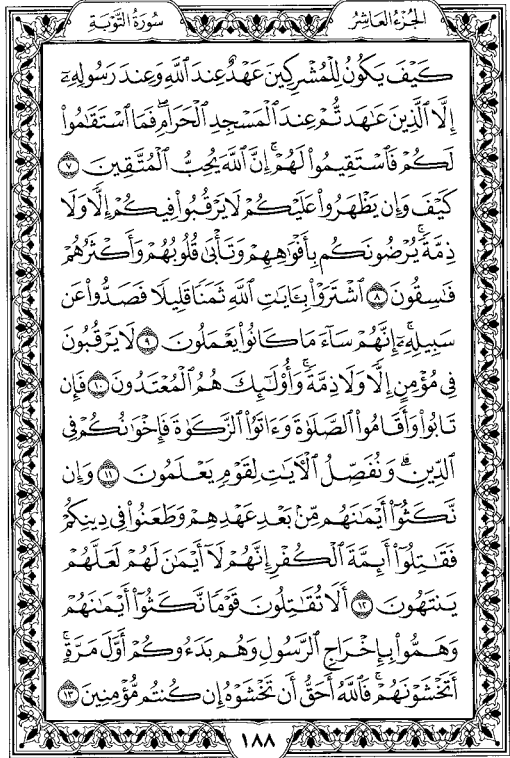 سُورَةُ التَّوْبَةِ
الجُزْءُ العَاشِرُ
كَيْفَ يَكُونُ لِلْمُشْرِكِينَ عَهْدٌ عِندَ ٱللَّهِ وَعِندَ رَسُولِهِۦٓ
إِلَّا ٱلَّذِينَ عَٰهَدتُّمْ عِندَ ٱلْمَسْجِدِ ٱلْحَرَامِۖ فَمَا ٱسْتَقَٰمُوا۟
لَكُمْ فَٱسْتَقِيمُوا۟ لَهُمْۚ إِنَّ ٱللَّهَ يُحِبُّ ٱلْمُتَّقِينَ ٧
كَيْفَ وَإِن يَظْهَرُوا۟ عَلَيْكُمْ لَا يَرْقُبُوا۟ فِيكُمْ إِلًّا وَلَا
ذِمَّةًۚ يُرْضُونَكُم بِأَفْوَٰهِهِمْ وَتَأْبَىٰ قُلُوبُهُمْ وَأَكْثَرُهُمْ
فَٰسِقُونَ ٨ ٱشْتَرَوْا۟ بِـَٔايَٰتِ ٱللَّهِ ثَمَنًا قَلِيلًا فَصَدُّوا۟ عَن
سَبِيلِهِۦٓۚ إِنَّهُمْ سَآءَ مَا كَانُوا۟ يَعْمَلُونَ ٩ لَا يَرْقُبُونَ
فِى مُؤْمِنٍ إِلًّا وَلَا ذِمَّةًۚ وَأُو۟لَٰٓئِكَ هُمُ ٱلْمُعْتَدُونَ ١٠ فَإِن
تَابُوا۟ وَأَقَامُوا۟ ٱلصَّلَوٰةَ وَءَاتَوُا۟ ٱلزَّكَوٰةَ فَإِخْوَٰنُكُمْ فِى
ٱلدِّينِۗ وَنُفَصِّلُ ٱلْـَٔايَٰتِ لِقَوْمٍ يَعْلَمُونَ ١١ وَإِن
نَّكَثُوٓا۟ أَيْمَٰنَهُم مِّنۢ بَعْدِ عَهْدِهِمْ وَطَعَنُوا۟ فِى دِينِكُمْ
فَقَٰتِلُوٓا۟ أَئِمَّةَ ٱلْكُفْرِۙ إِنَّهُمْ لَآ أَيْمَٰنَ لَهُمْ لَعَلَّهُمْ
يَنتَهُونَ ١٢ أَلَا تُقَٰتِلُونَ قَوْمًا نَّكَثُوٓا۟ أَيْمَٰنَهُمْ
وَهَمُّوا۟ بِإِخْرَاجِ ٱلرَّسُولِ وَهُم بَدَءُوكُمْ أَوَّلَ مَرَّةٍۚ
أَتَخْشَوْنَهُمْۚ فَٱللَّهُ أَحَقُّ أَن تَخْشَوْهُ إِن كُنتُم مُّؤْمِنِينَ ١٣
١٨٨